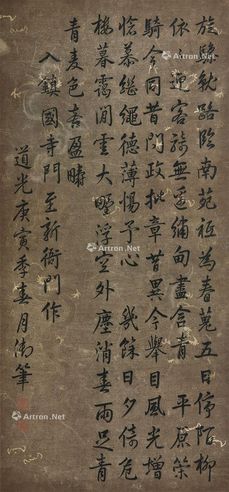 旋驂欹路臨南苑祗為春蒐五日停陌柳
依迎客騎無邊緬甸盡含青　平原策
騎今同昔問政批章昔異今舉目風光增
愴慕繼繩德薄惕予心　幾餘日夕倚危
樓暮靄間雲大野浮空外塵消春雨足青
青麦色喜盈疇
入鎮國寺門至新衙門作
道光庚寅季春月御筆
Artron.Net
Artron.Net
Artron.Net
Artron.Net